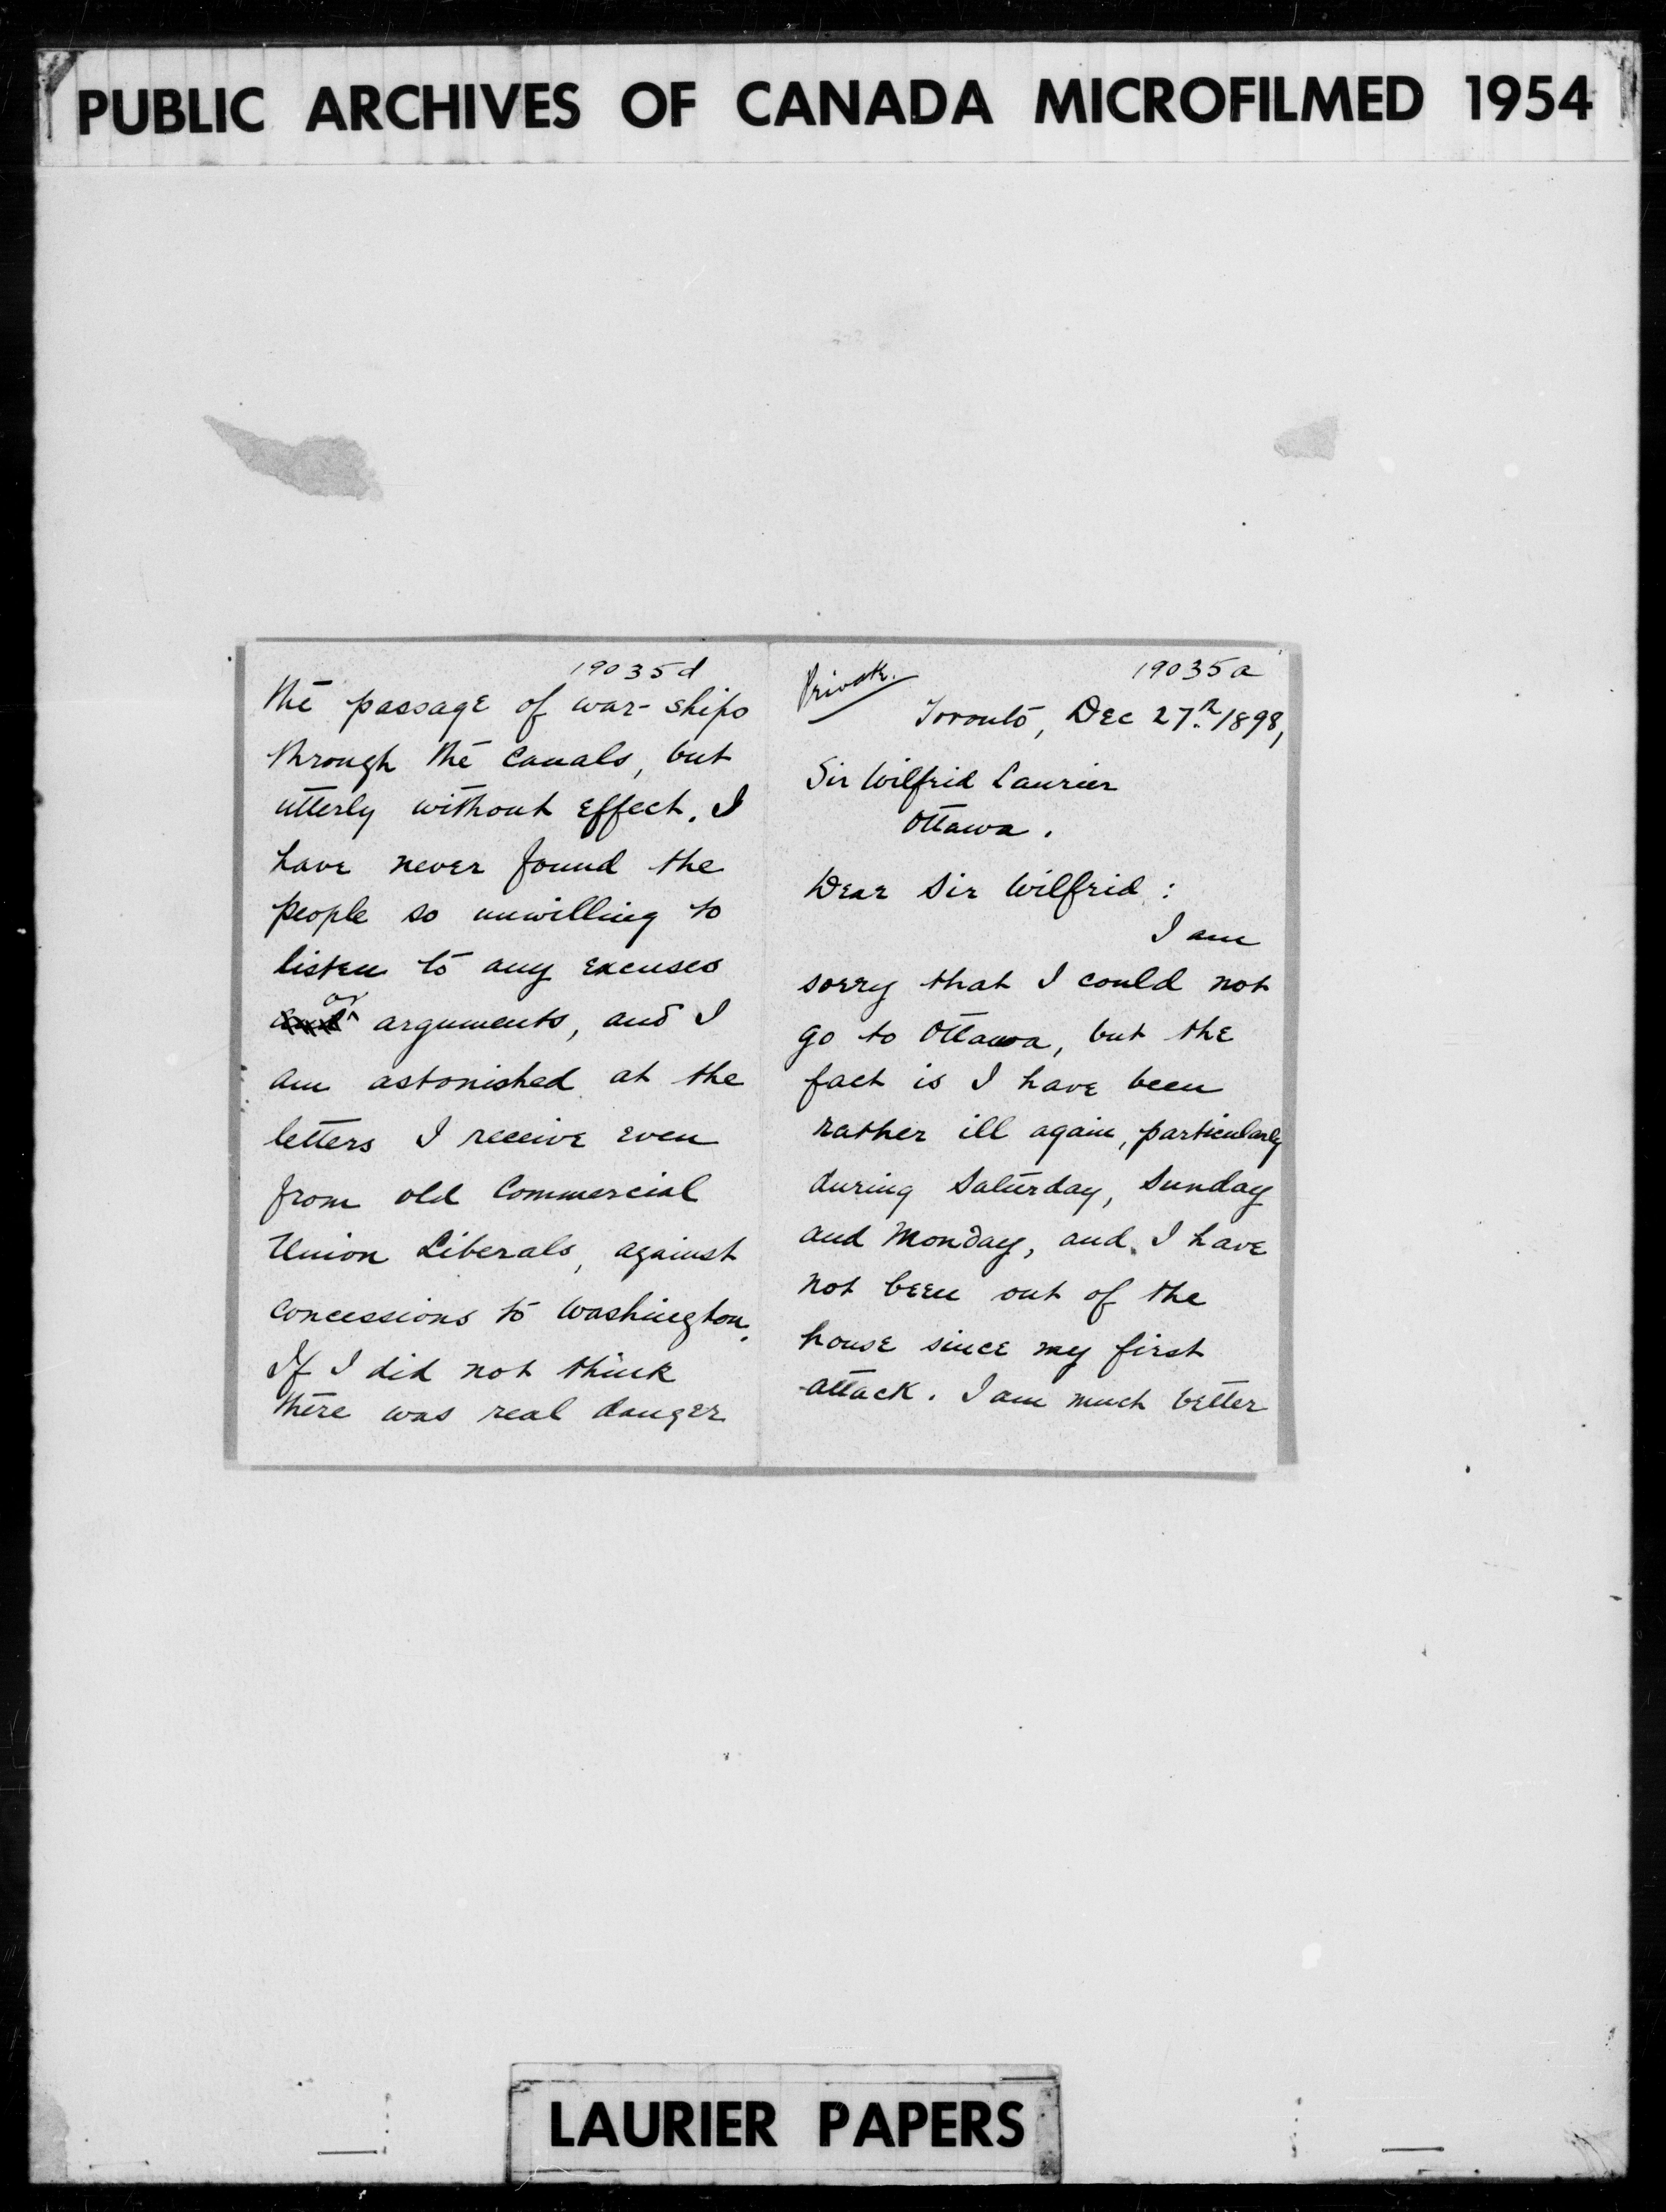 PUBLIC ARCHIVES OF CANADA MICROFILMED 1954
19035d
the passage of war-ships
through the Canals, but
utterly without effect. I
have never found the
people so unwilling to
listen to any excuses
or
and arguments, and I
am astonished at the
letters I receive even
from old Commercial
Union Liberals, against
concessions to Washington.
If I did not think
there was real danger
19035a
Private.
Toronto, Dec 27th 1898,
Sir Wilfrid Laurier
Ottawa.
Dear Sir Wilfrid:
I am
sorry that I could not
go to Ottawa, but the
fact is I have been
rather ill again, particularly
during Saturday, Sunday
and Monday, and I have
not been out of the
house since my first
attack. I am much better
LAURIER PAPERS